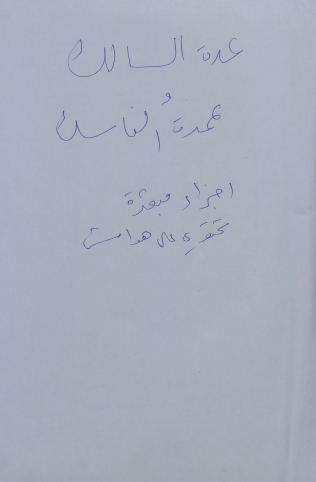 عدة السالك
عمدة الناسك
اجزاء مبعثرة
تحتوي على هوامش